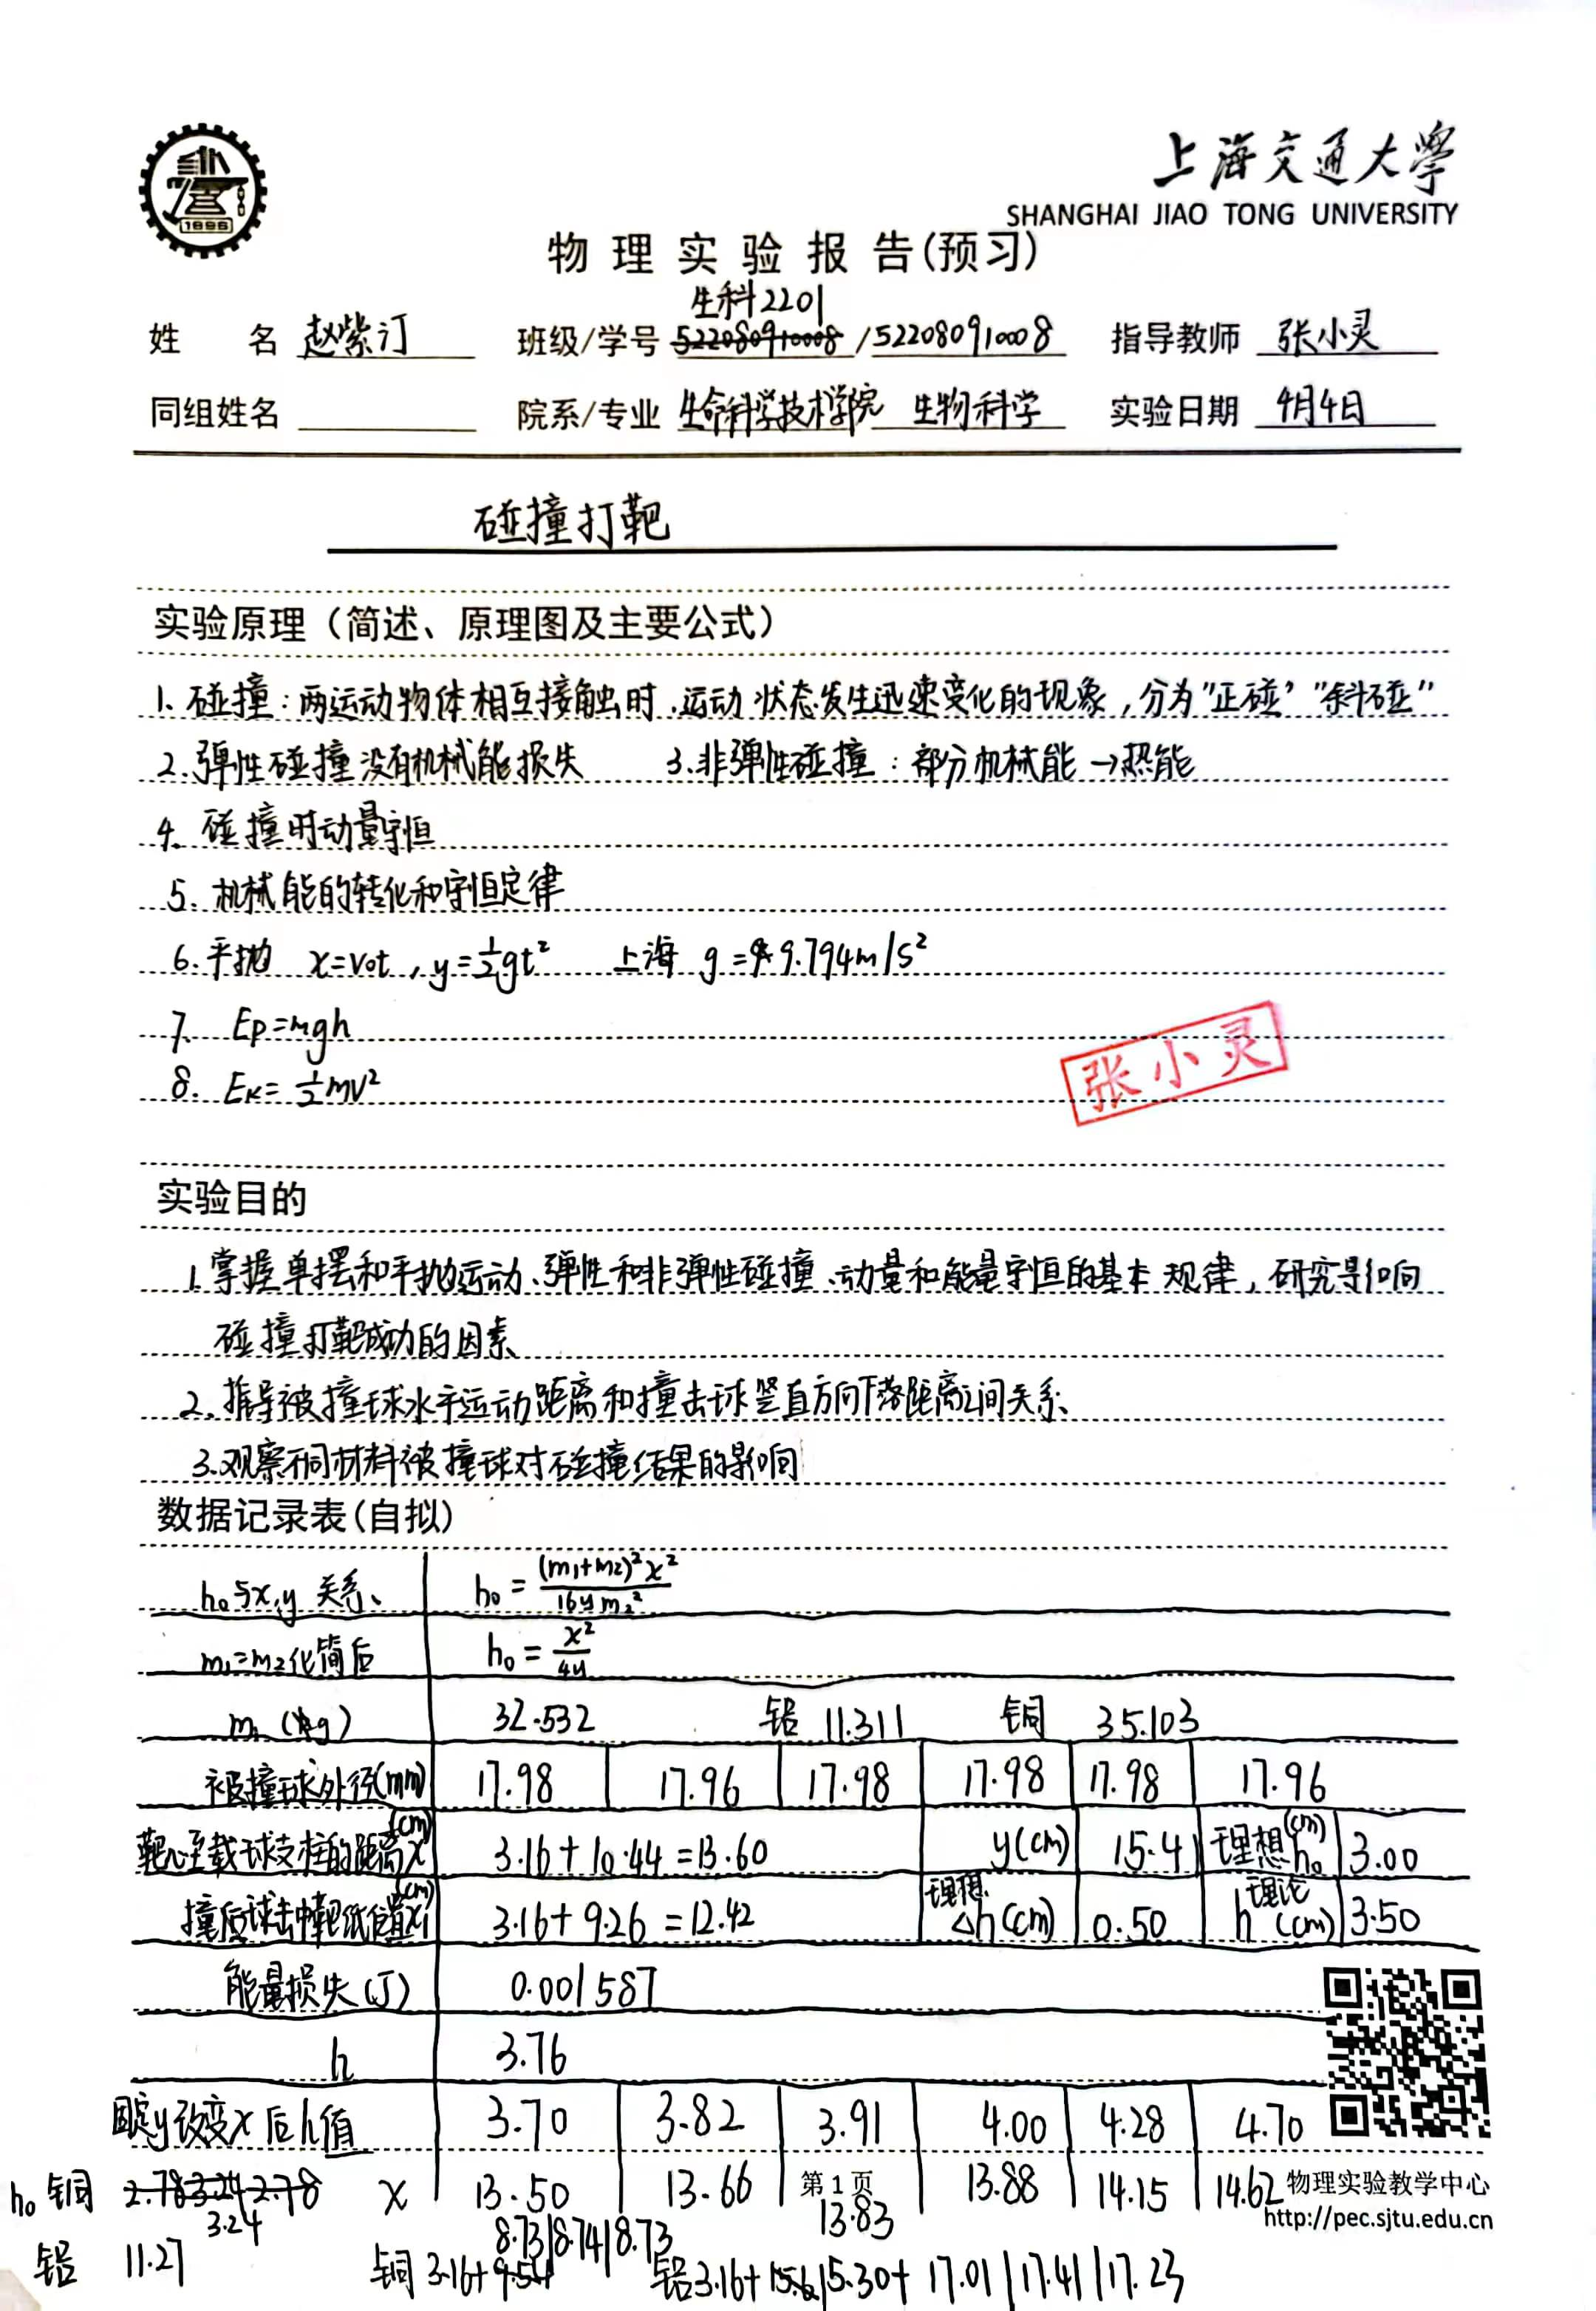 1896
上海交通大學
SHANGHAI JIAO TONG UNIVERSITY
物理实验报告(预习)
生科2201
姓 名 赵紫汀 班级/学号 522080910008 /522080910008 指导教师 张小灵
同组姓名 院系/专业 生命科学技术学院 生物科学 实验日期 4月4日
碰撞打靶
实验原理（简述、原理图及主要公式）
1. 碰撞：两运动物体相互接触时,运动状态发生迅速变化的现象，分为"正碰""斜碰"
2. 弹性碰撞没有机械能损失 3.非弹性碰撞：部分机械能→热能
4. 碰撞时动量守恒
5. 机械能的转化和守恒定律
6.平抛 x=v₀t , y=½gt² 上海 g=9.794m/s²
7. Ep=mgh
8. Ek=½mv²
张小灵
实验目的
1.掌握单摆和平抛运动、弹性和非弹性碰撞、动量和能量守恒的基本规律，研究影响
碰撞打靶成功的因素
2.推导被撞球水平运动距离和撞击球竖直方向下落距离之间关系
3.观察不同材料被撞球对碰撞结果的影响
数据记录表(自拟)
h₀与x,y关系、 h₀=(m₁+m₂)²x²/16ym₂²
m₁=m₂化简后 h₀=x²/4y
m₁(g) 32.532 铝 11.311 铜 35.103
被撞球外径(mm) 17.98 17.96 17.98 17.98 17.98 17.96
靶心至载球支柱的距离x(cm) 3.16+10.44=13.60 y(cm) 15.41 理想h₀(cm) 3.00
撞后球击中靶纸位置x₁(cm) 3.16+9.26=12.42 理想Δh(cm) 0.50 理论h(cm) 3.50
能量损失(J) 0.001587
h 3.76
固定y改变x后h值 3.70 3.82 3.91 4.00 4.28 4.70
h₀ 铜 2.78 3.24 2.78 x 13.50 13.66 第1页 13.88 14.15 14.62 物理实验教学中心
3.24 8.73|8.74|8.73 13.83 http://pec.sjtu.edu.cn
铝 11.27 铜 3.16+9.54 铝3.16+ 15.30+ 17.01|17.41|17.23